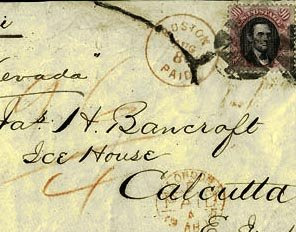 Nevada"
BOSTON
8
PAID
90
Jas. H. Bancroft
Ice House
Calcutta
LONDON
PAID